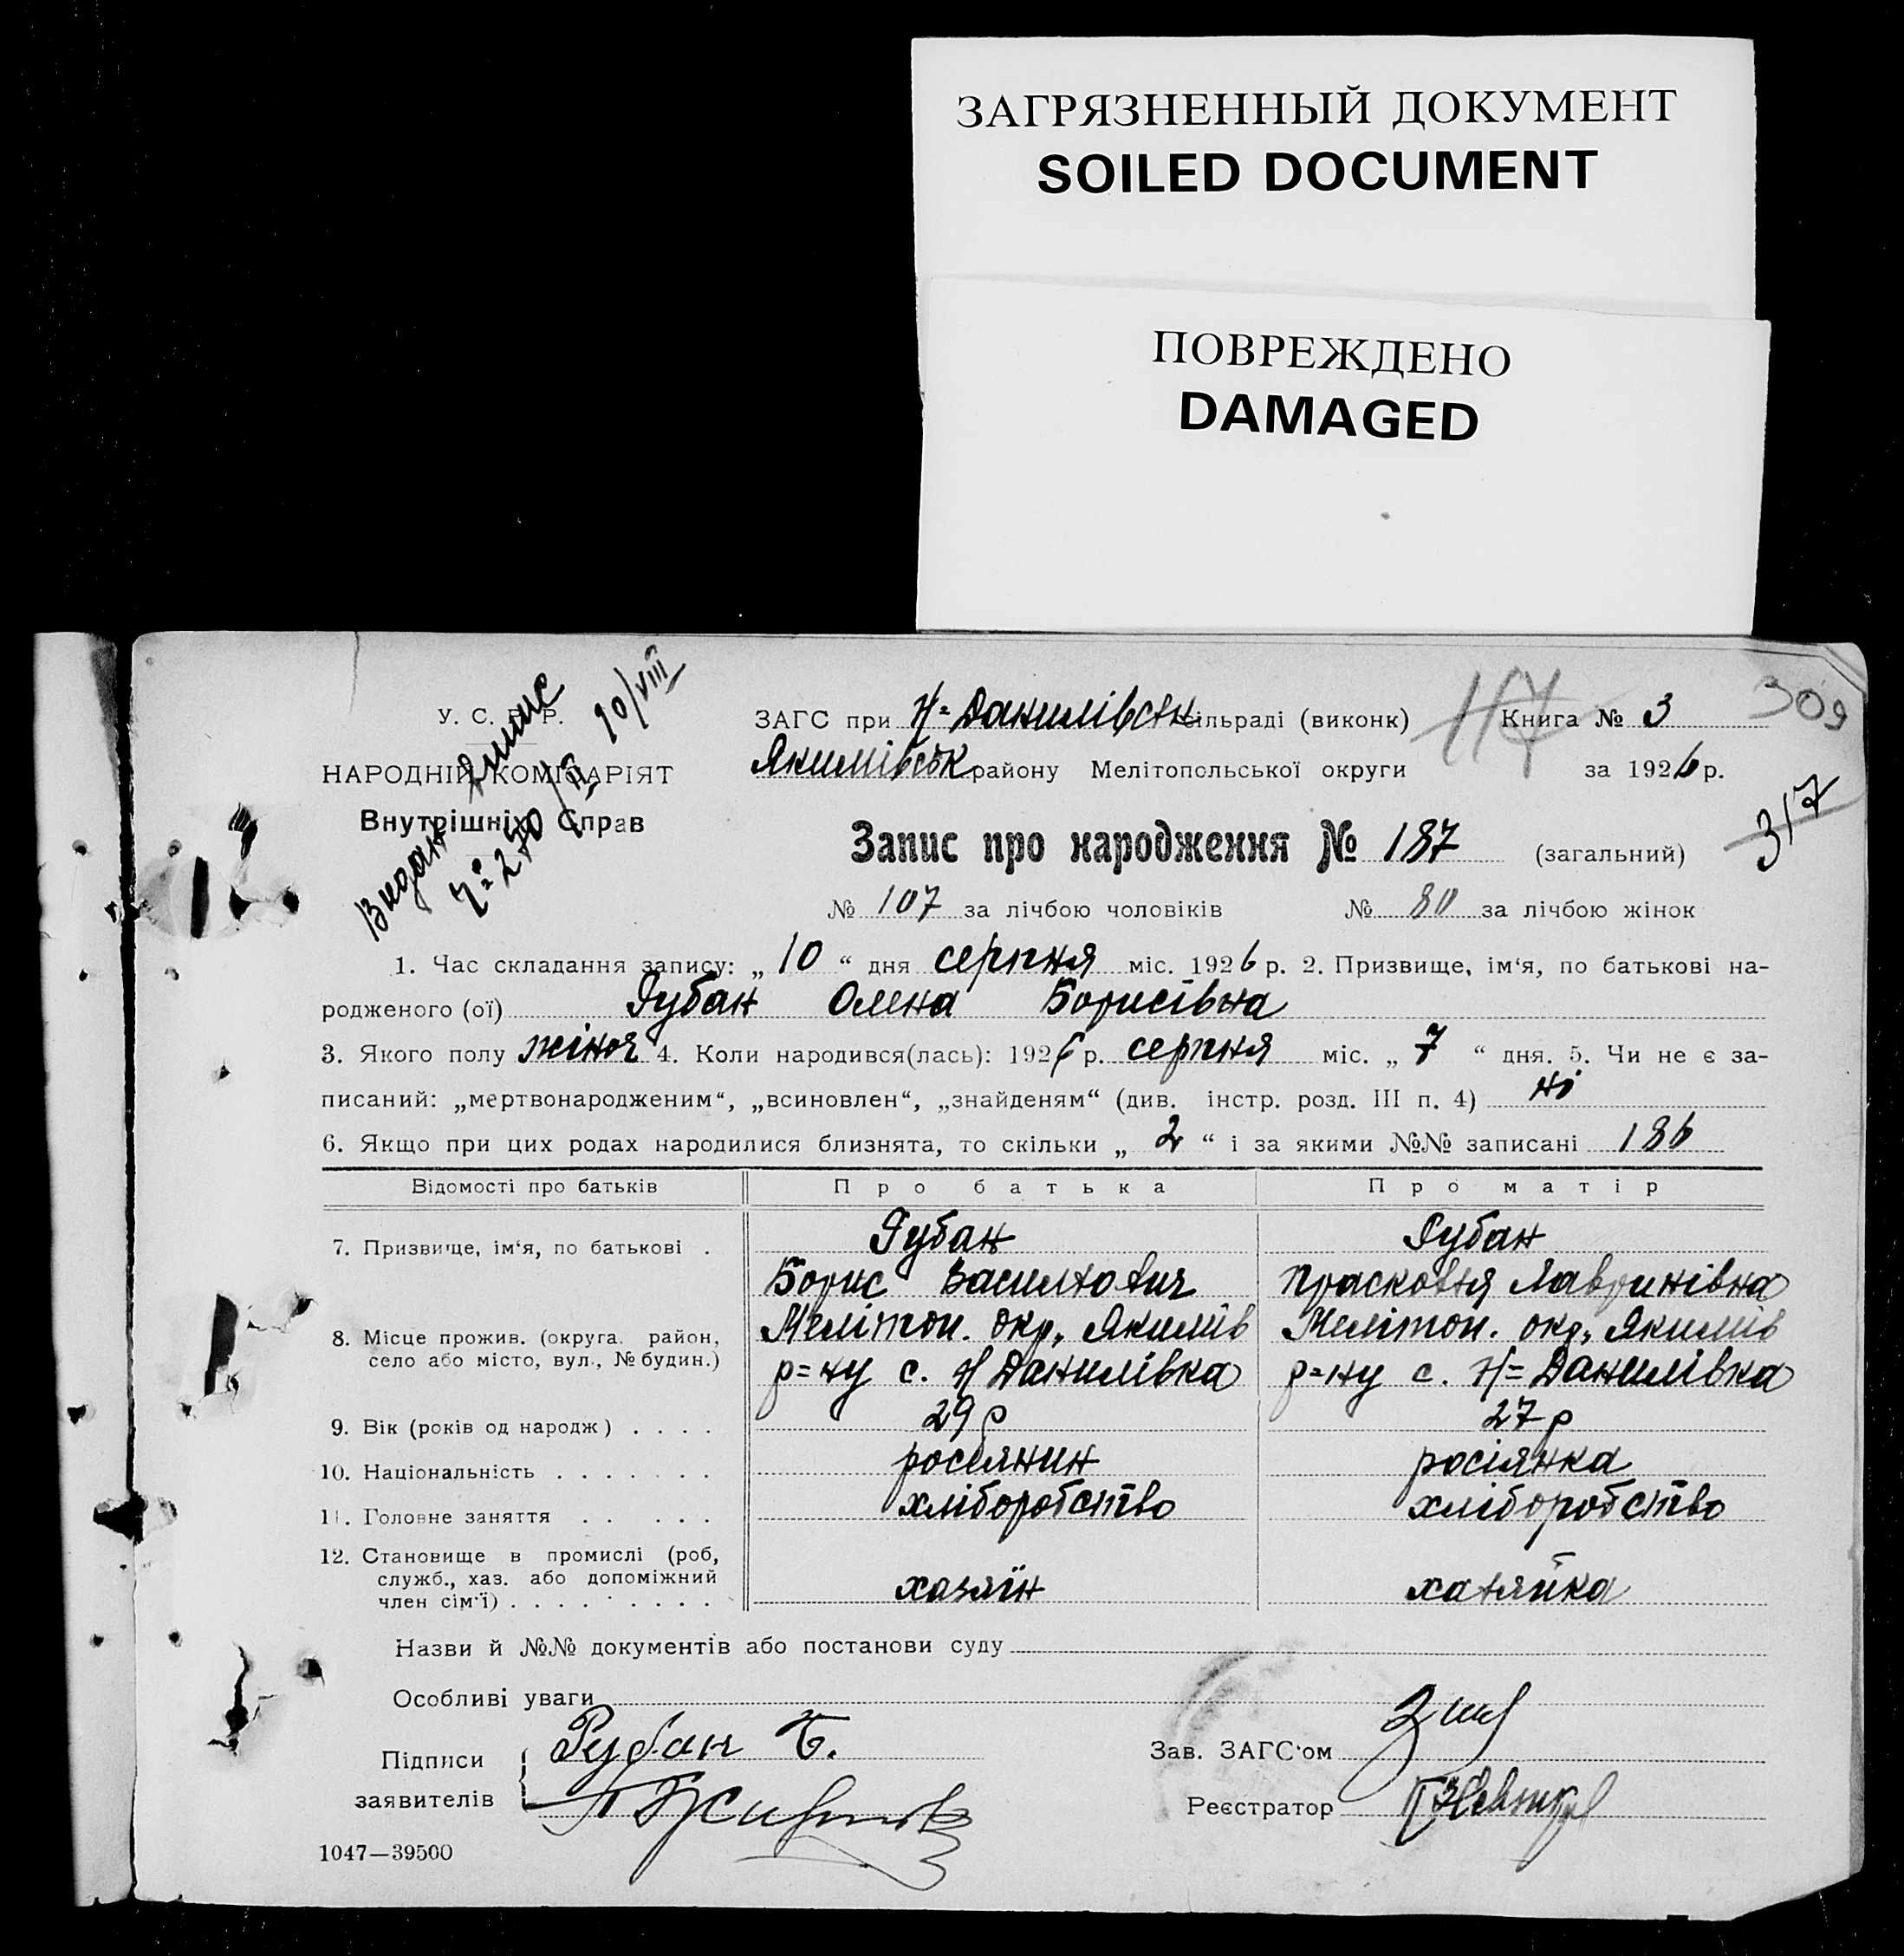 ЗАГРЯЗНЕННЫЙ ДОКУМЕНТ
SOILED DOCUMENT
ПОВРЕЖДЕНО
DAMAGED
309
117
317
Видан
10/VIII
У. С. Р. Р.
НАРОДНІЙ КОМІСАРІЯТ
Внутрішніх Справ
ЗАГС при Н=Данилівськ сільраді (виконк) Книга № 3
Якимівськ району Мелітопольської округи за 1926 р.
Запис про народження № 187 (загальний)
№ 107 за лічбою чоловіків № 80 за лічбою жінок
1. Час складання запису: „ 10 “ дня серпня міс. 1926 р. 2. Призвище, ім‘я, по батькові на-
родженого (ої) Рубан Олена Борисівна
3. Якого полу жіноч 4. Коли народився(лась): 1926 р. серпня міс. „ 7 “ дня. 5. Чи не є за-
писаний: „мертвонародженим“, „всиновлен“, „знайденям“ (див. інстр. розд. III п. 4) ні
6. Якщо при цих родах народилися близнята, то скільки „ 2 “ і за якими №№ записані 186
Відомості про батьків Про батька Про матір
7. Призвище, ім‘я, по батькові . Рубан Рубан
Борис Васильович Прасковья Лавринівна
8. Місце прожив. (округа, район, Мелітоп. окр., Якимів Мелітоп. окр., Якимів
село або місто, вул., № будин.) р=ну с. Н Данилівка р=ну с. Н=Данилівка
9. Вік (років од народж) . . . . 29 р 27 р
10. Національність . . . . . . . росіянин росіянка
11. Головне заняття . . . . . хліборобство хліборобство
12. Становище в промислі (роб,
служб., хаз. або допоміжний хазяїн хазяйка
член сім‘ї) . . . . . . . . .
Назви й №№ документів або постанови суду
Особливі уваги
Підписи Рубан Б. Зав. ЗАГС‘ом
заявителів Реєстратор
1047—39500